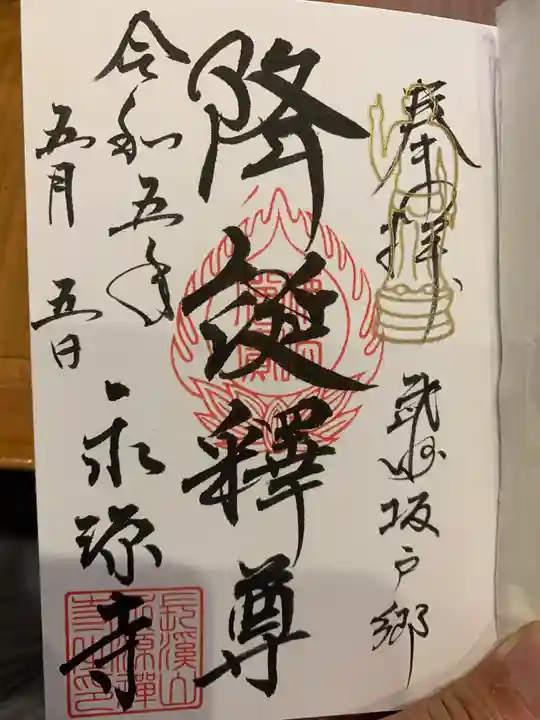 奉拝
武州坂戸郷
降誕釋尊
令和五年
五月五日
永源寺